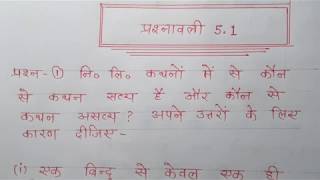 प्रश्नावली 5.1
प्रश्न-① नि० लि० कथनों में से कौन
से कथन सत्य हैं और कौन से
कथन असत्य? अपने उत्तरों के लिए
कारण दीजिए-
(i) एक बिन्दु से केवल एक ही